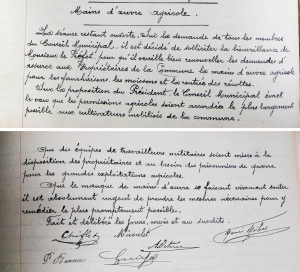 Mains d'œuvre agricole.
La séance restant ouverte, sur la demande de tous les membres
du Conseil Municipal, il est décidé de solliciter la bienveillance de
Monsieur le Préfet, pour qu'il veuille bien renouveler les demandes d'
assurer aux Propriétaires de la Commune la main d'œuvre agricole
pour les fenchaisons, les moissons et la rentrée des récoltes.
Sur la proposition du Président, le Conseil Municipal émet
le vœu que les permissions agricoles soient accordées le plus largement
possible aux cultivateurs mobilisés de la commune.
Que des équipes de travailleurs militaires soient mises à la
disposition des propriétaires et au besoin des prisonniers de guerre
pour les grandes exploitations agricoles.
Que le manque de mains d'œuvre se faisant vivement sentir
il est absolument urgent de prendre les mesures nécessaires pour y
remédier le plus promptement possible.
Fait et délibéré les jour, mois et an susdits.